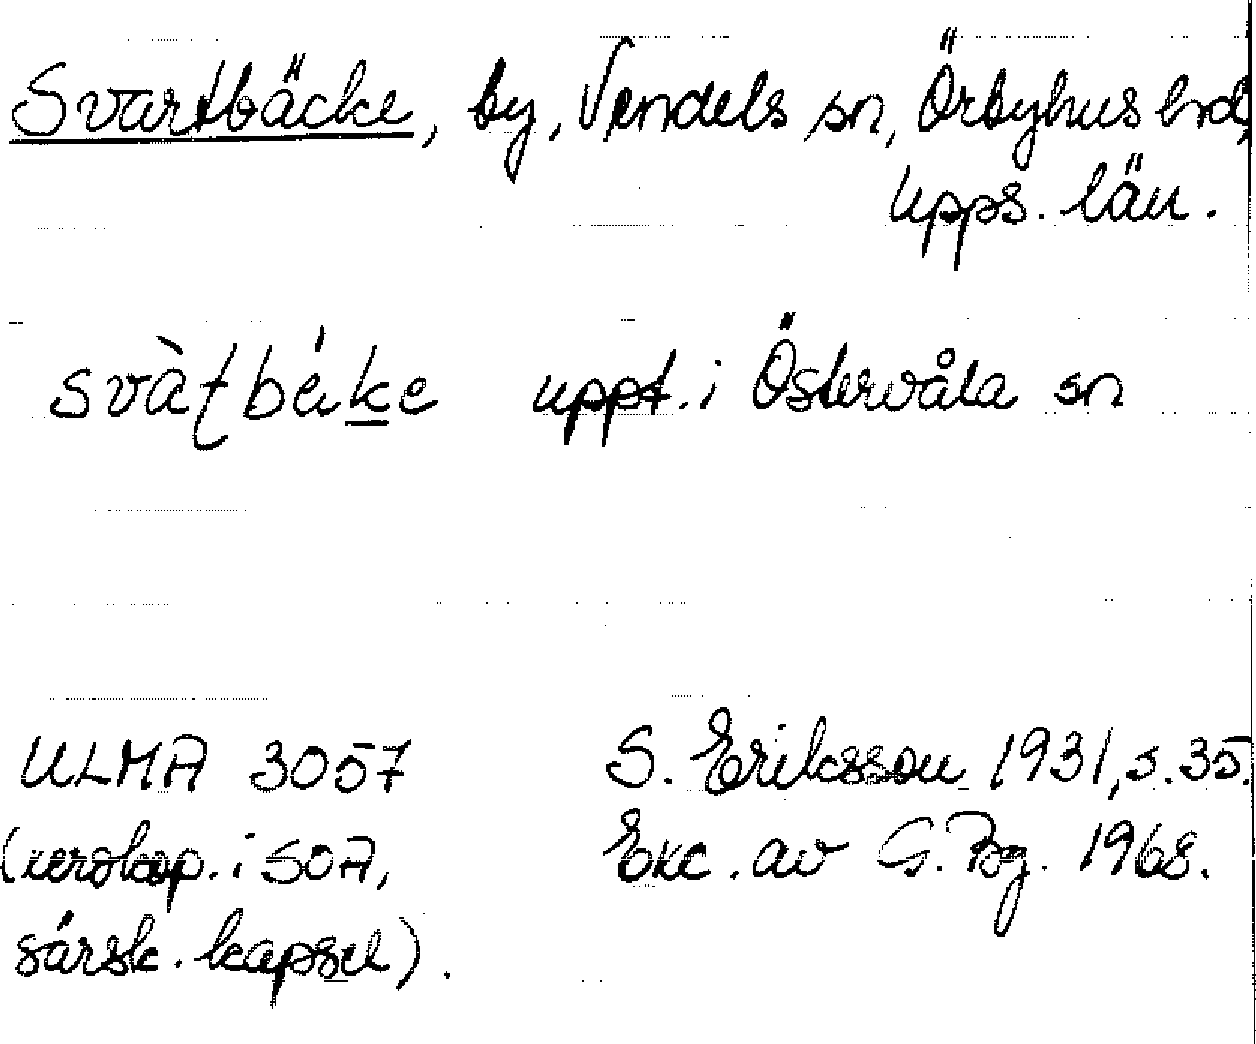 Svartbäcke, by, Vendels sn, Örbyhus hd,
Upps. län.
svàtbéke uppt. i Östervåla sn
ULMA 3057 S. Eriksson 1931, s. 35.
(xerokop. i SOA, Exc. av G. 1968.
särsk. kapsel).